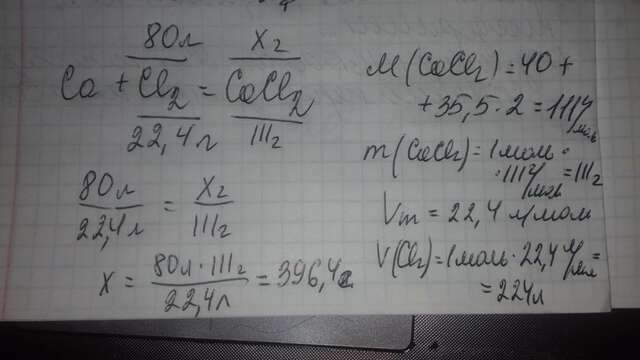 80л x г
Ca + Cl2 = CaCl2
22,4 л 111г
80л / 22,4л = x г / 111г
x = 80л · 111г / 22,4л = 396,4г
M(CaCl2) = 40 +
+ 35,5 · 2 = 111 г/моль
m(CaCl2) = 1 моль ·
· 111 г/моль = 111г
Vm = 22,4 л/моль
V(Cl2) = 1 моль · 22,4 л/моль =
= 22,4л